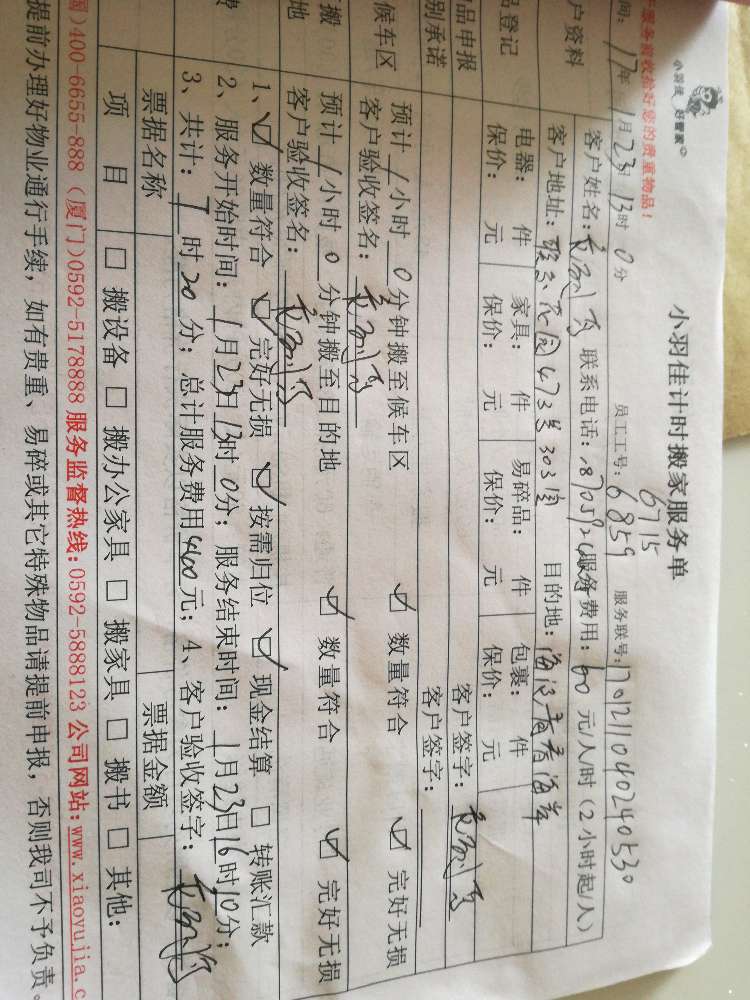 小羽佳 好管家
服务前收拾好您的贵重物品!
小羽佳计时搬家服务单
6715
间: 17年1月23日13时0分 员工工号: 6859 服务联号: 701211040240530
户资料 客户姓名: 联系电话: 服务费用: 60 元/人/时 (2小时起/人)
客户地址: 联发花园473号303室 目的地: 海沧青春海岸
品登记 电器: 件 家具: 件 易碎品: 件 包裹: 件
保价: 元 保价: 元 保价: 元 保价: 元
品申报 客户签字:
别承诺 客户签字:
候车区 预计1小时0分钟搬至候车区 ☑ 数量符合 ☑ 完好无损
客户验收签名:
搬 预计1小时0分钟搬至目的地 ☑ 数量符合 ☑ 完好无损
地 客户验收签名:
1、☑ 数量符合 ☑ 完好无损 ☑ 按需归位 ☑ 现金结算 □ 转账汇款
2、服务开始时间: 1月23日13时0分; 服务结束时间: 1月23日16时10分;
费 3、共计: 时20分; 总计服务费用460元; 4、客户验收签字:
票据名称 票据金额
项 目 □ 搬设备 □ 搬办公家具 □ 搬家具 □ 搬书 □ 其他:
国)400-6655-888 (厦门)0592-5178888 服务监督热线:0592-5888123 公司网站:www.xiaoyujia.c
提前办理好物业通行手续, 如有贵重、易碎或其它特殊物品请提前申报, 否则我司不予负责。